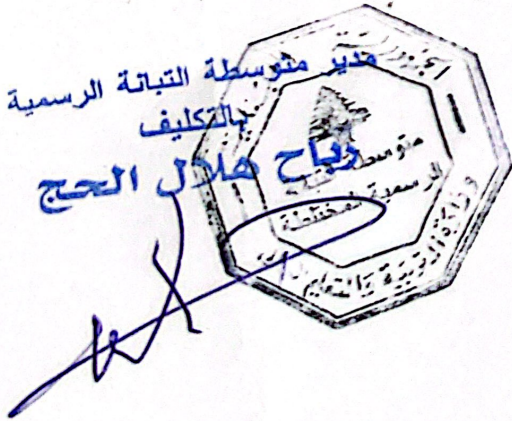 مدير متوسطة التبانة الرسمية
بالتكليف
رباح هلال الحج
الجمهورية
متوسطة
الرسمية المختلطة
وزارة التربية والتعليم